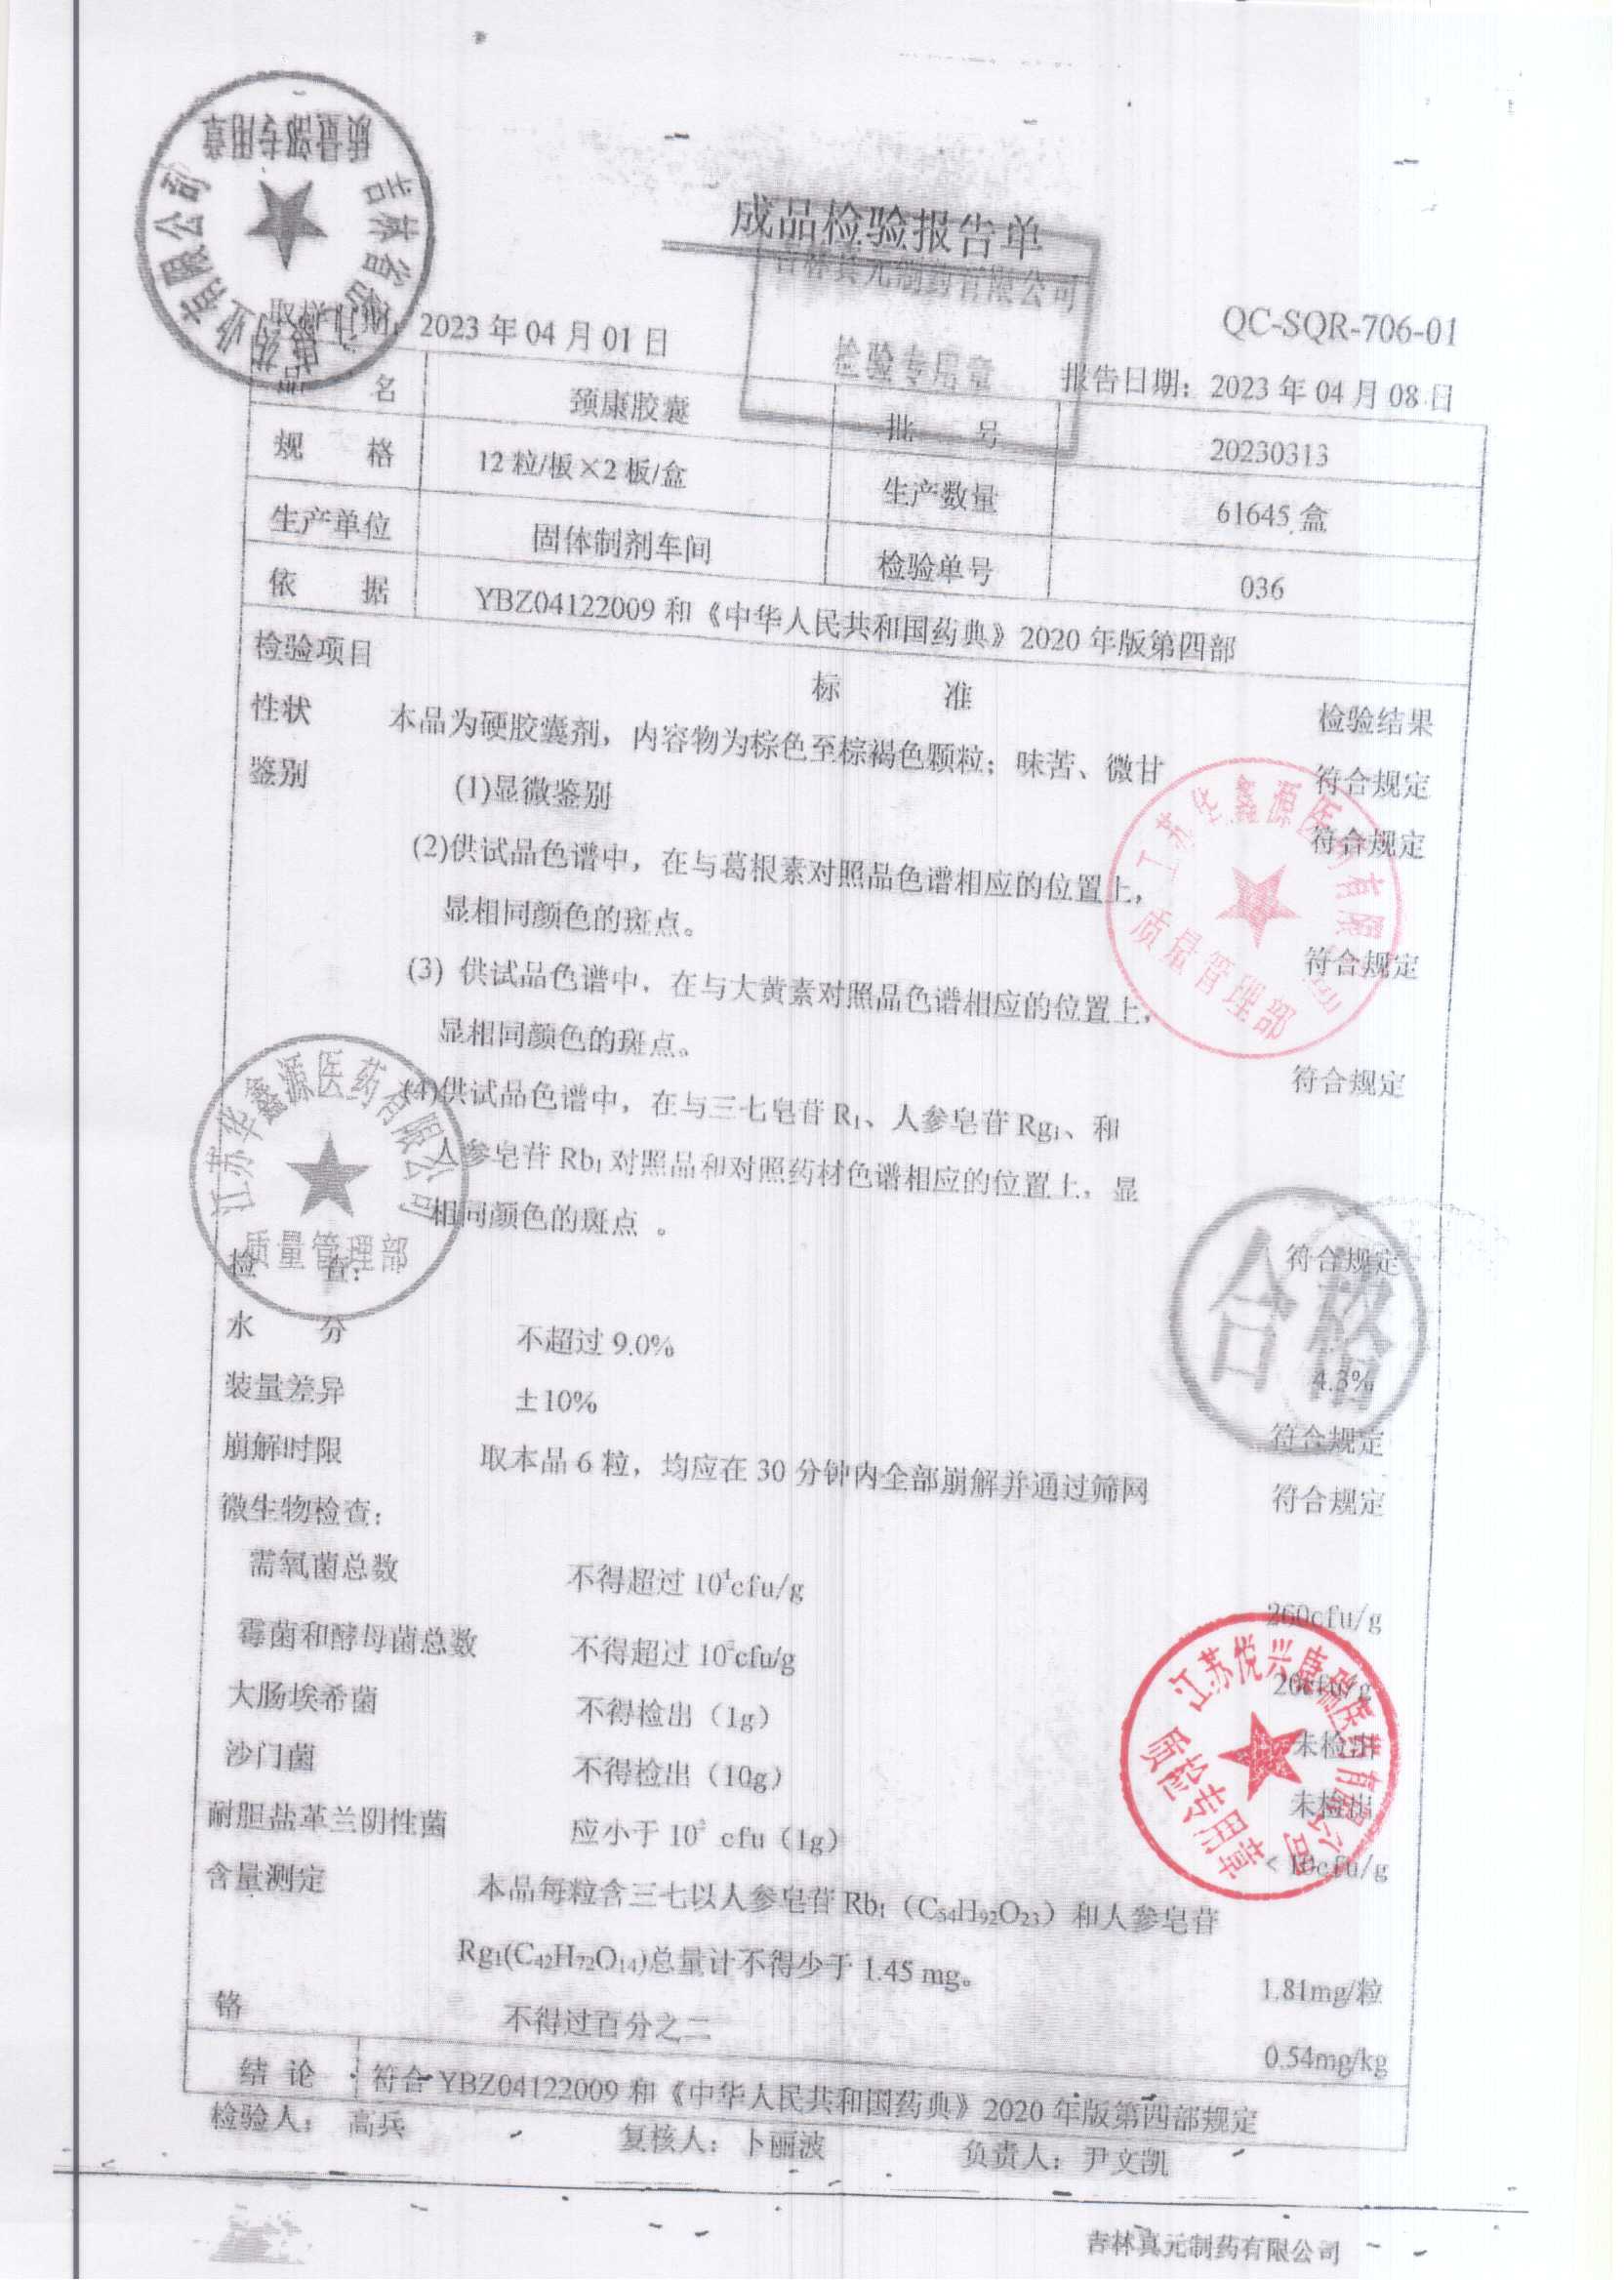 成品检验报告单
吉林真元制药有限公司
检验专用章
质量部专用章
QC-SQR-706-01
取样日期：2023年04月01日
报告日期：2023年04月08日
品 名 颈康胶囊 批 号 20230313
规 格 12粒/板×2板/盒 生产数量 61645盒
生产单位 固体制剂车间 检验单号 036
依 据 YBZ04122009和《中华人民共和国药典》2020年版第四部
检验项目 标 准 检验结果
性状 本品为硬胶囊剂，内容物为棕色至棕褐色颗粒；味苦、微甘 符合规定
鉴别 (1)显微鉴别 符合规定
(2)供试品色谱中，在与葛根素对照品色谱相应的位置上，
显相同颜色的斑点。 符合规定
(3) 供试品色谱中，在与大黄素对照品色谱相应的位置上，
显相同颜色的斑点。 符合规定
(4)供试品色谱中，在与三七皂苷R₁、人参皂苷Rg₁、和
人参皂苷Rb₁对照品和对照药材色谱相应的位置上，显
相同颜色的斑点。 符合规定
江苏华鑫源医药有限公司
质量管理部
江苏华鑫源医药有限公司
质量管理部
合格
检 查：
水 分 不超过9.0% 4.3%
装量差异 ±10% 符合规定
崩解时限 取本品6粒，均应在30分钟内全部崩解并通过筛网 符合规定
微生物检查：
需氧菌总数 不得超过10⁴cfu/g 260cfu/g
霉菌和酵母菌总数 不得超过10²cfu/g 20cfu/g
大肠埃希菌 不得检出（1g） 未检出
沙门菌 不得检出（10g） 未检出
耐胆盐革兰阴性菌 应小于10² cfu（1g） <10cfu/g
质检专用章
含量测定 本品每粒含三七以人参皂苷Rb₁（C₅₄H₉₂O₂₃）和人参皂苷
Rg₁(C₄₂H₇₂O₁₄)总量计不得少于1.45 mg。 1.81mg/粒
铬 不得过百分之二 0.54mg/kg
结 论 符合YBZ04122009和《中华人民共和国药典》2020年版第四部规定
检验人： 高兵 复核人：卜丽波 负责人：尹文凯
吉林真元制药有限公司